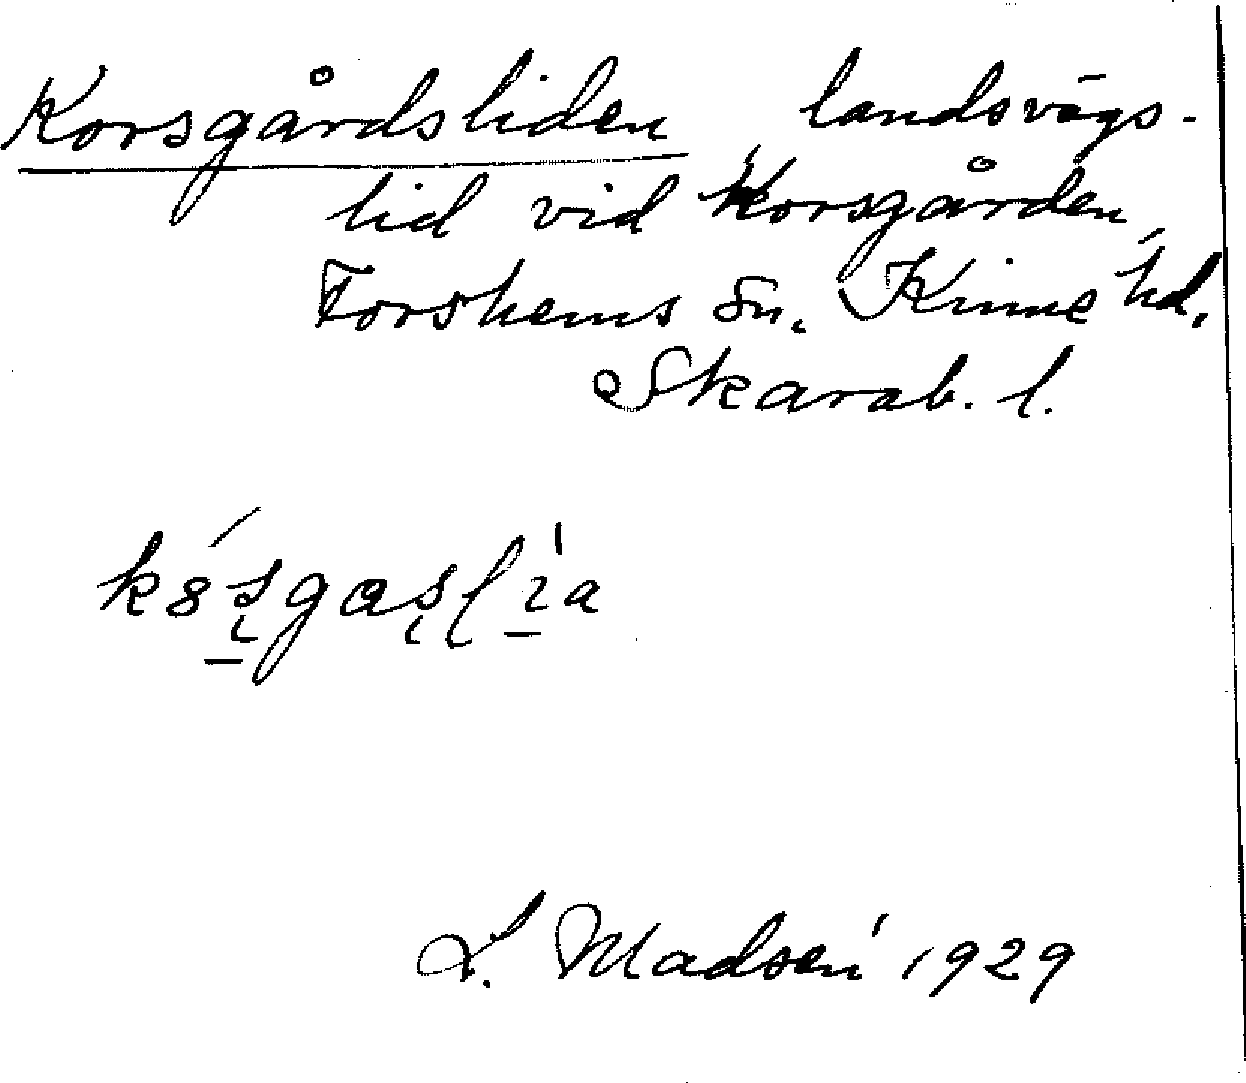 Korsgårdsliden landsvägs-
lid vid Korsgården,
Forshems sn. Kinne hd,
Skarab. l.
L. Madsén 1929